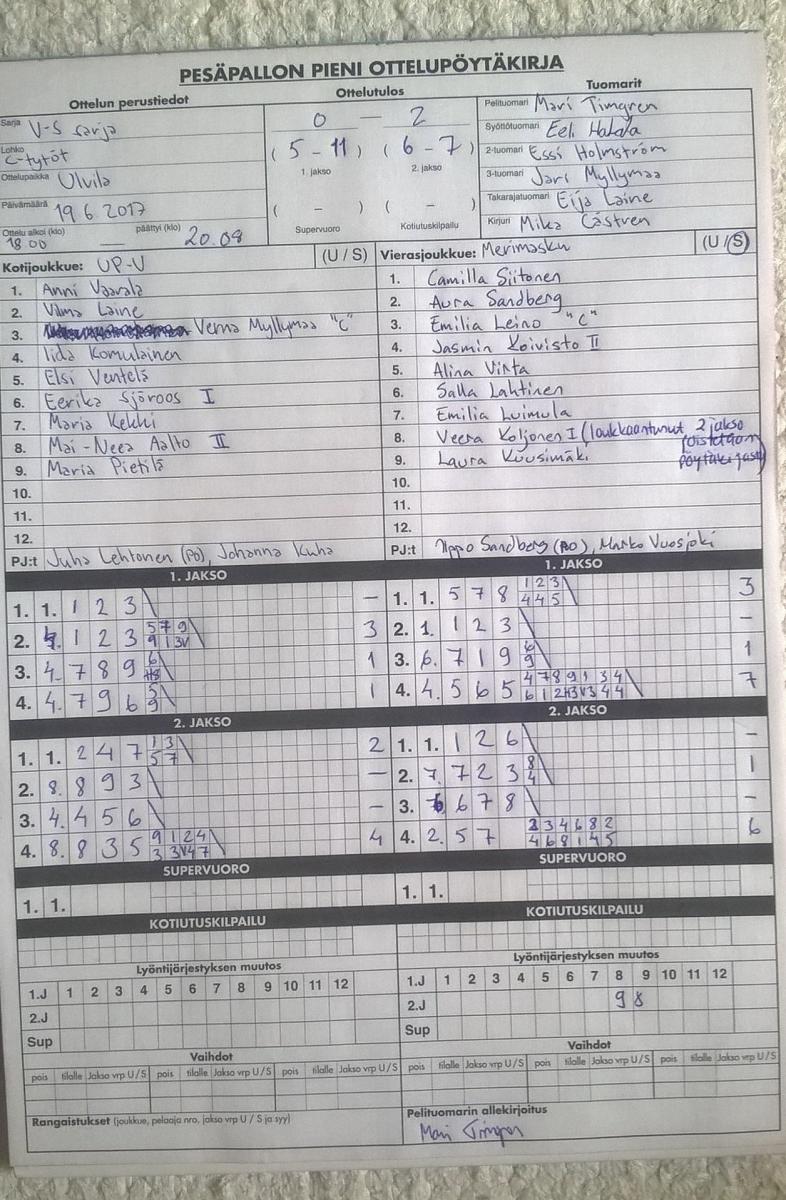 PESÄPALLON PIENI OTTELUPÖYTÄKIRJA
Ottelun perustiedot
Sarja V-S sarja
Lohko C-tytöt
Ottelupaikka Ulvila
Päivämäärä 19.6.2017
Ottelu alkoi (klo) päättyi (klo)
18.00 — 20.08
Ottelutulos
0 — 2
(5 - 11) (6 - 7)
1. jakso 2. jakso
( - ) ( - )
Supervuoro Kotiutuskilpailu
Tuomarit
Pelituomari Mari Timgren
Syöttötuomari Eeli
2-tuomari Essi Holmström
3-tuomari Jari Myllymaa
Takarajatuomari Eija Laine
Kirjuri Mika Castren
Kotijoukkue: UP-V (U / S)
1. Anni Vaarala
2. Vilma Laine
3. Verna Myllymaa "C"
4. Iida Komulainen
5. Elsi Ventelä
6. Eerika Sjöroos I
7. Maria Kekki
8. Mai-Neea Aalto II
9. Maria Pietilä
10.
11.
12.
PJ:t Juha Lehtonen (PO), Johanna Kuha
Vierasjoukkue: Merimasku (U / S)
1. Camilla Siitonen
2. Aura Sandberg
3. Emilia Leino "C"
4. Jasmin Koivisto II
5. Alina Virta
6. Salla Lahtinen
7. Emilia Luimula
8. Veera Koljonen I (loukkaantunut 2 jakso poistetaan pöytäkirjasta)
9. Laura Kuusimäki
10.
11.
12.
PJ:t Sandberg (PO), Marko Vuosjoki
1. JAKSO
1. 1. 1 2 3 \ —
2. 4. 1 2 3 5 7 9 \ 3
9 1 3V
3. 4. 7 8 9 6 \ 1
4. 4. 7 9 6 5 \ 1
9
2. JAKSO
1. 1. 2 4 7 1 3 \ 2
5 7
2. 8. 8 9 3 \ —
3. 4. 4 5 6 \ —
4. 8. 8 3 5 9 1 2 4 \ 4
3 3V 4 7
SUPERVUORO
1. 1.
KOTIUTUSKILPAILU
1. JAKSO
1. 1. 5 7 8 1 2 3 \ 3
4 4 5
2. 1. 1 2 3 \ —
3. 6. 7 1 9 6 \ 1
9
4. 4. 5 6 5 4 7 8 9 1 3 4 \ 7
6 1 2H 3V 3 4 4
2. JAKSO
1. 1. 1 2 6 \ —
2. 7. 7 2 3 8 \ 1
4
3. 6 6 7 8 \ —
4. 2. 5 7 2 3 4 6 8 2 6
4 6 8 1 4 5
SUPERVUORO
1. 1.
KOTIUTUSKILPAILU
Lyöntijärjestyksen muutos
1.J 1 2 3 4 5 6 7 8 9 10 11 12
2.J
Sup
Vaihdot
pois tilalle Jakso vrp U / S pois tilalle Jakso vrp U / S pois tilalle Jakso vrp U / S
Rangaistukset (joukkue, pelaaja nro, jakso vrp U / S ja syy)
Lyöntijärjestyksen muutos
1.J 1 2 3 4 5 6 7 8 9 10 11 12
2.J 9 8
Sup
Vaihdot
pois tilalle Jakso vrp U / S pois tilalle Jakso vrp U / S pois tilalle Jakso vrp U / S
Pelituomarin allekirjoitus
Mari Timgren